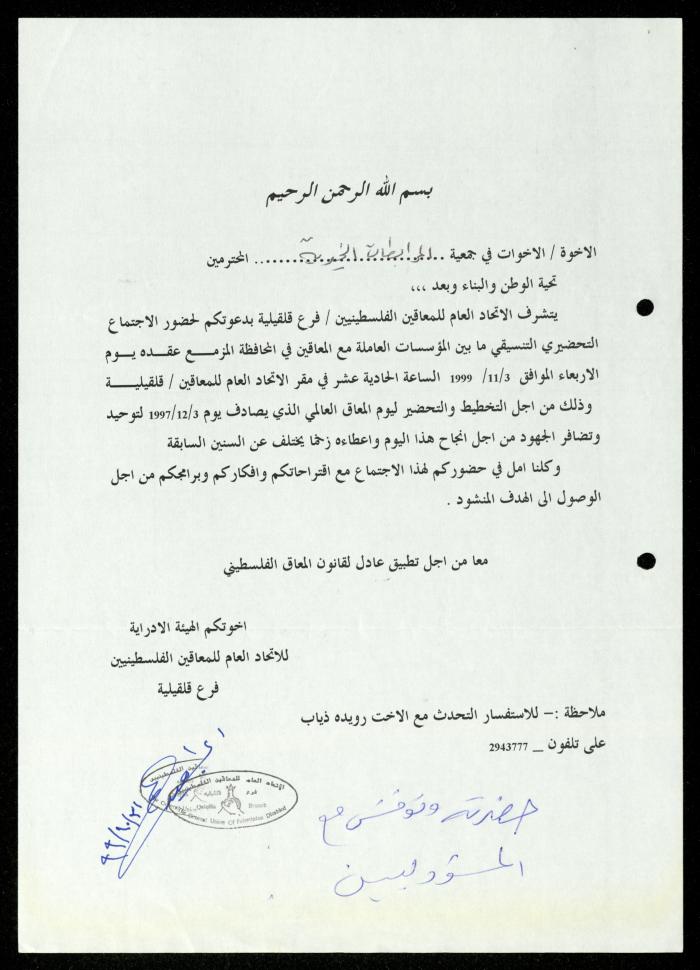 بسم الله الرحمن الرحيم
الاخوة / الاخوات في جمعية .. المرابطات الخيرية ... المحترمين
تحية الوطن والبناء وبعد ،،،
يتشرف الاتحاد العام للمعاقين الفلسطينيين / فرع قلقيلية بدعوتكم لحضور الاجتماع
التحضيري التنسيقي ما بين المؤسسات العاملة مع المعاقين في المحافظة المزمع عقده يوم
الاربعاء الموافق 11/3/ 1999 الساعة الحادية عشر في مقر الاتحاد العام للمعاقين / قلقيلية
وذلك من اجل التخطيط والتحضير ليوم المعاق العالمي الذي يصادف يوم 1997/12/3 لتوحيد
وتضافر الجهود من اجل انجاح هذا اليوم واعطاءه زخما يختلف عن السنين السابقة
وكلنا امل في حضوركم لهذا الاجتماع مع اقتراحاتكم وافكاركم وبرامجكم من اجل
الوصول الى الهدف المنشود .
معا من اجل تطبيق عادل لقانون المعاق الفلسطيني
اخوتكم الهيئة الادراية
للاتحاد العام للمعاقين الفلسطينيين
فرع قلقيلية
ملاحظة :– للاستفسار التحدث مع الاخت رويده ذياب
على تلفون _ 2943777
الاتحاد العام للمعاقين الفلسطينيين
فرع قلقيلية
Qalqilia Branch
General Union Of Palestinian Disabled
٩٩/١٠/٣١
حضرته ونوقش مع
المسؤولين